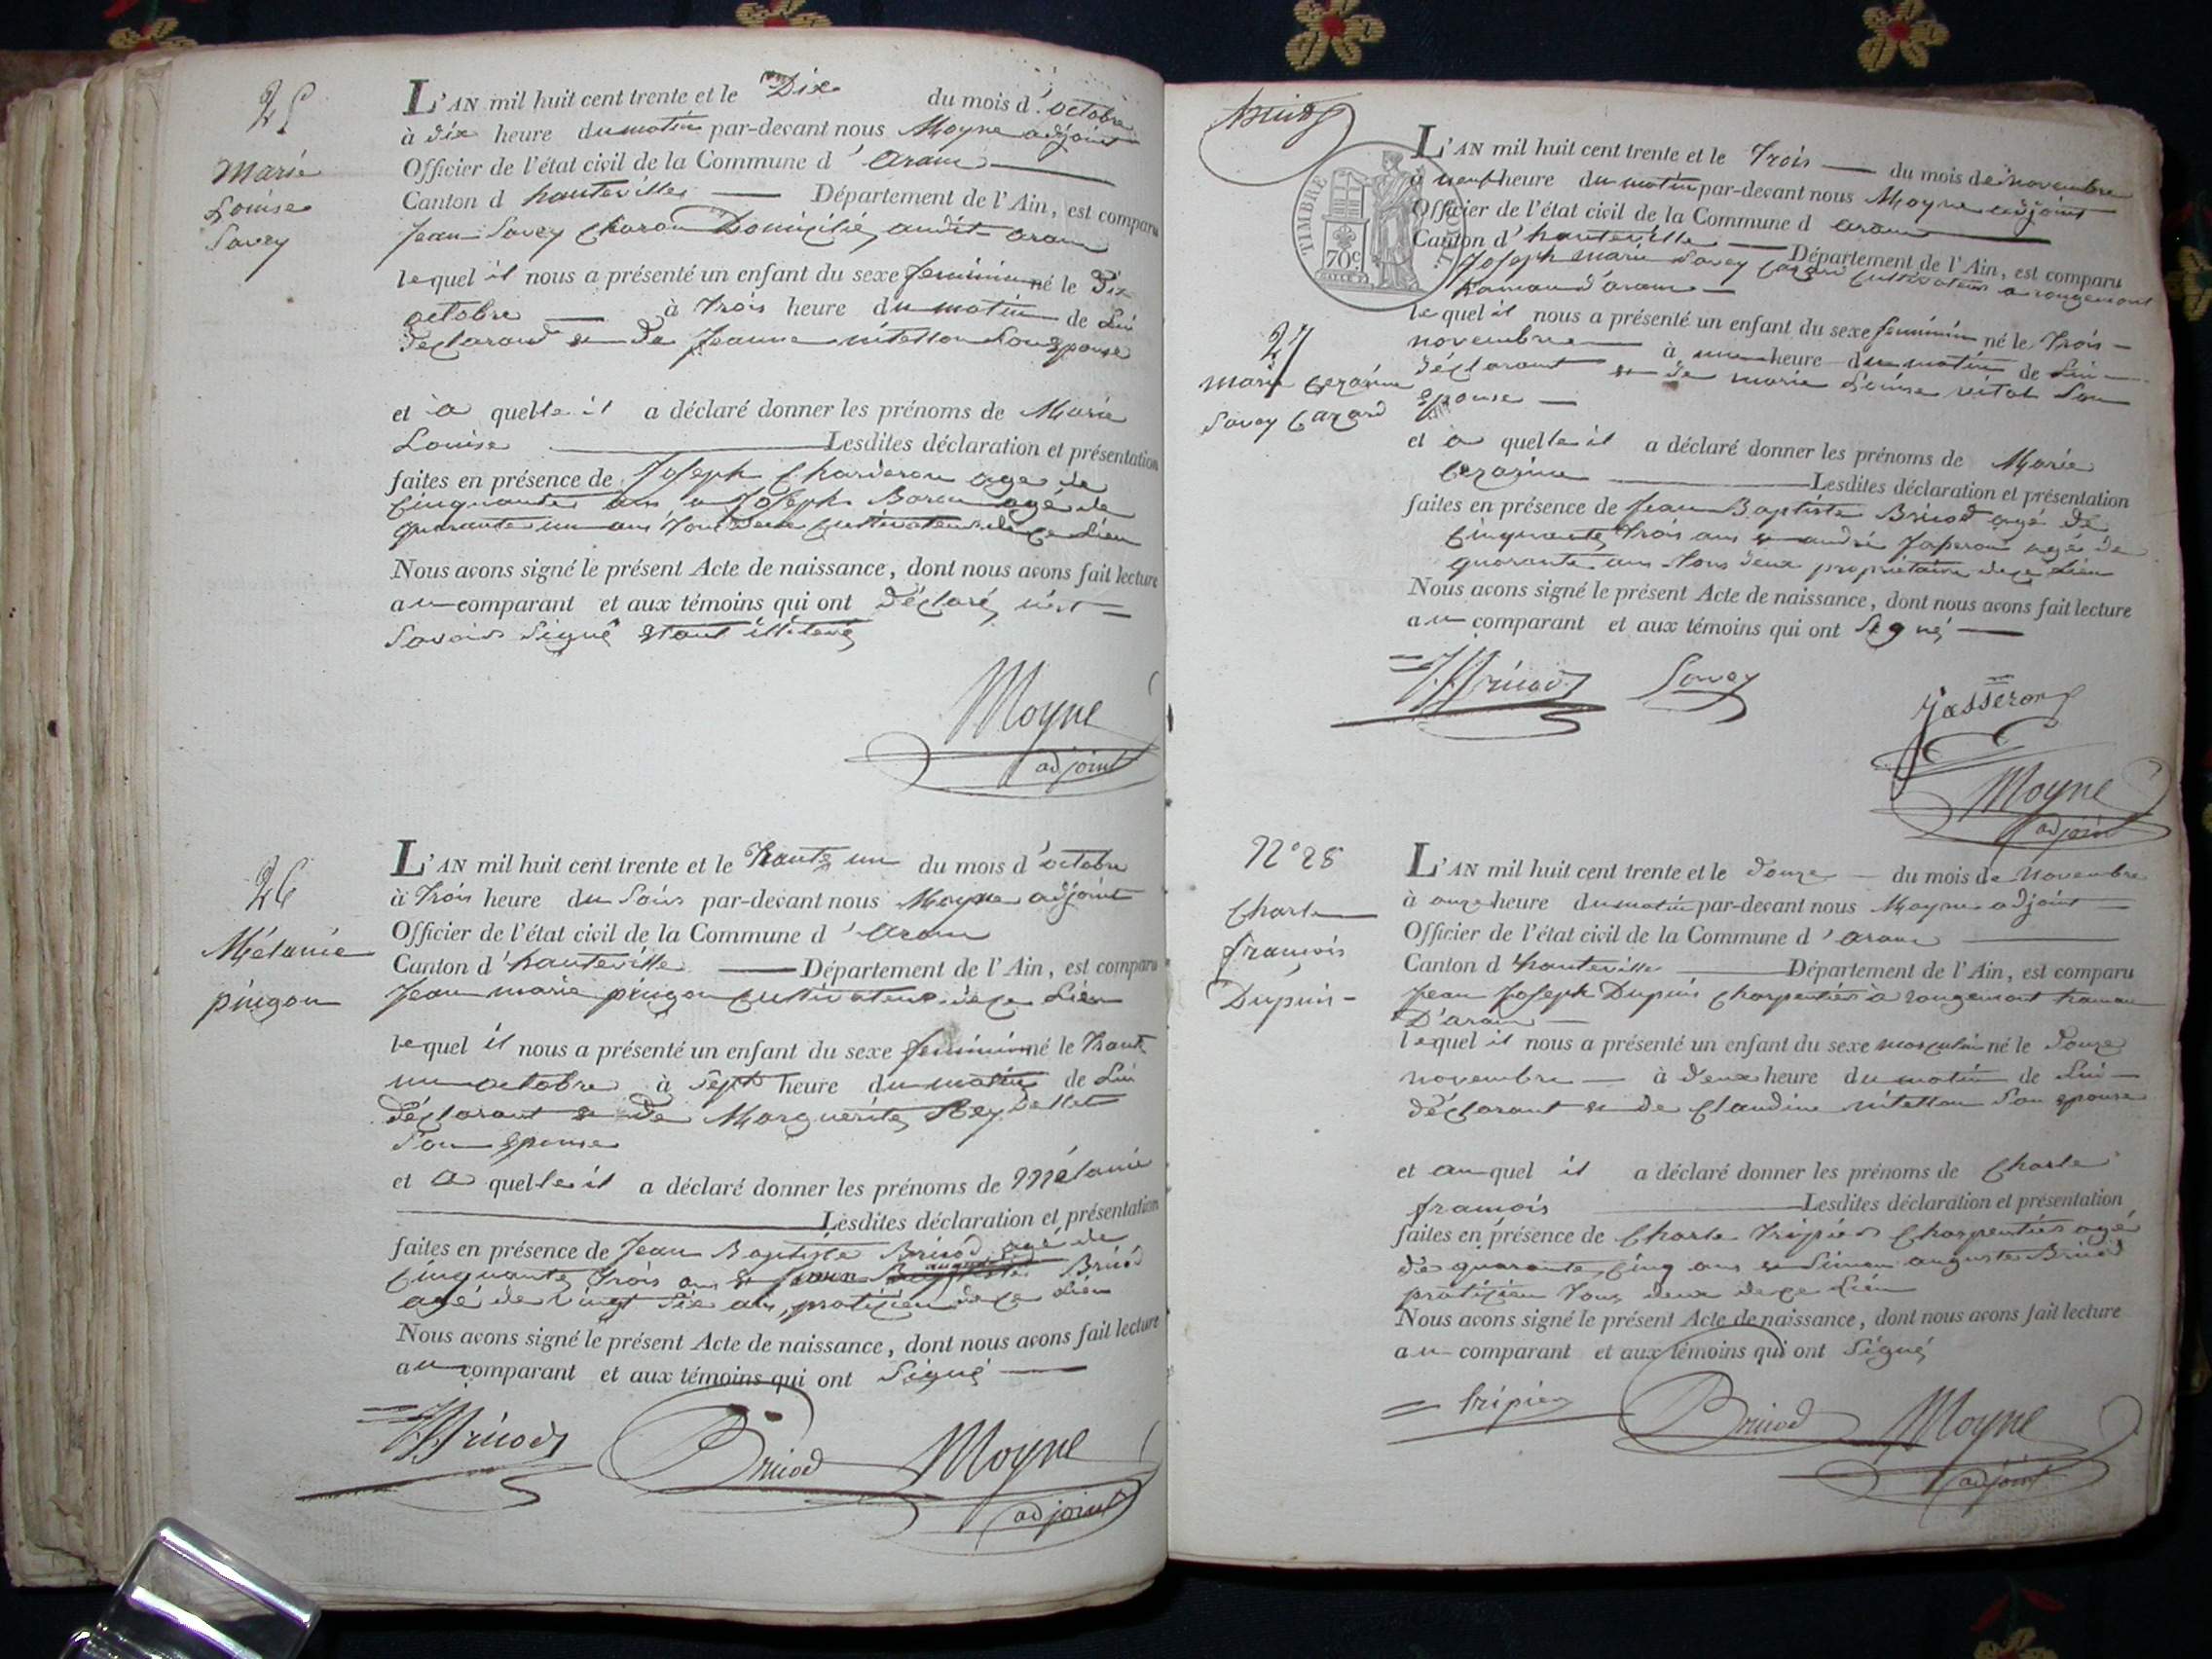 25
Marie
Louise
Savey
L'AN mil huit cent trente et le Dix du mois d'octobre
à dix heure du matin par-devant nous Moyne adjoint
Officier de l'état civil de la Commune d'aranc
Canton d hauteville Département de l'Ain, est comparu
Jean Savey Charon Domicilié audit aranc
lequel il nous a présenté un enfant du sexe feminin né le Dix
octobre à trois heure du matin de Lui
déclarand & de Jeanne vitellon Son Epouse
et à quelle il a déclaré donner les prénoms de Marie
Louise Lesdites déclaration et présentation
faites en présence de Joseph Charderon age de
Cinquante ans & Joseph agé de
quarante un ans tous deux cultivateurs de ce Lieu
Nous avons signé le présent Acte de naissance, dont nous avons fait lecture
au comparant et aux témoins qui ont Déclaré
Savoir Signé Etant illiteré
Moyne
adjoint
26
Mélanie
pingon
L'AN mil huit cent trente et le trante un du mois d'octobre
à trois heure du Soir par-devant nous Moyne adjoint
Officier de l'état civil de la Commune d'aranc
Canton d'hauteville Département de l'Ain, est comparu
Jean marie pingon cultivateur de ce Lieu
lequel il nous a présenté un enfant du sexe feminin né le trante
un octobre à Sept heure du matin de Lui
déclarant & de Marguerite Reydellet
Son Epouse
et a quelle il a déclaré donner les prénoms de Mélanie
Lesdites déclaration et présentation
faites en présence de Jean Baptiste Bricod agé de
Cinquante trois ans & Bricod
agé de vingt Six ans, praticien de ce Lieu
Nous avons signé le présent Acte de naissance, dont nous avons fait lecture
au comparant et aux témoins qui ont Signé
Bricod
Bricod
Moyne
adjoint
Bricod
TIMBRE
70c
27
marie Cezarine
Savey Cazard
L'AN mil huit cent trente et le trois du mois de novembre
a neuf heure du matin par-devant nous Moyne adjoint
Officier de l'état civil de la Commune d aranc
Canton d'hauteville Département de l'Ain, est comparu
Joseph marie Savey Cazard Cultivateur a rougemont
hamau d'aranc
lequel il nous a présenté un enfant du sexe feminin né le trois
novembre à une heure du matin de Lui
déclarant & de marie Louise vital Son
Epouse
et à quelle il a déclaré donner les prénoms de Marie
Cezarine Lesdites déclaration et présentation
faites en présence de Jean Baptiste Bricod agé de
Cinquante trois ans & andré Jasseron agé de
quarante ans tous deux propriétaire de ce Lieu
Nous avons signé le présent Acte de naissance, dont nous avons fait lecture
au comparant et aux témoins qui ont Signé
Bricod
Savey
Jasseron
Moyne
adjoint
N° 28
Charle
francois
Dupuis
L'AN mil huit cent trente et le douze du mois de Novembre
à onze heure du matin par-devant nous Moyne adjoint
Officier de l'état civil de la Commune d'aranc
Canton d'hauteville Département de l'Ain, est comparu
Jean Joseph Dupuis Charpentier à rougemont hamau
D'aranc
lequel il nous a présenté un enfant du sexe masculin né le Douze
novembre à deux heure du matin de Lui
déclarant & de Claudine vitellon Son Epouse
et au quel il a déclaré donner les prénoms de Charle
francois Lesdites déclaration et présentation
faites en présence de Charle tripier Charpentier agé
de quarante Cinq ans & Simon auguste Bricod
praticien tous deux de ce Lieu
Nous avons signé le présent Acte de naissance, dont nous avons fait lecture
au comparant et aux témoins qui ont Signé
tripier
Bricod
Moyne
adjoint